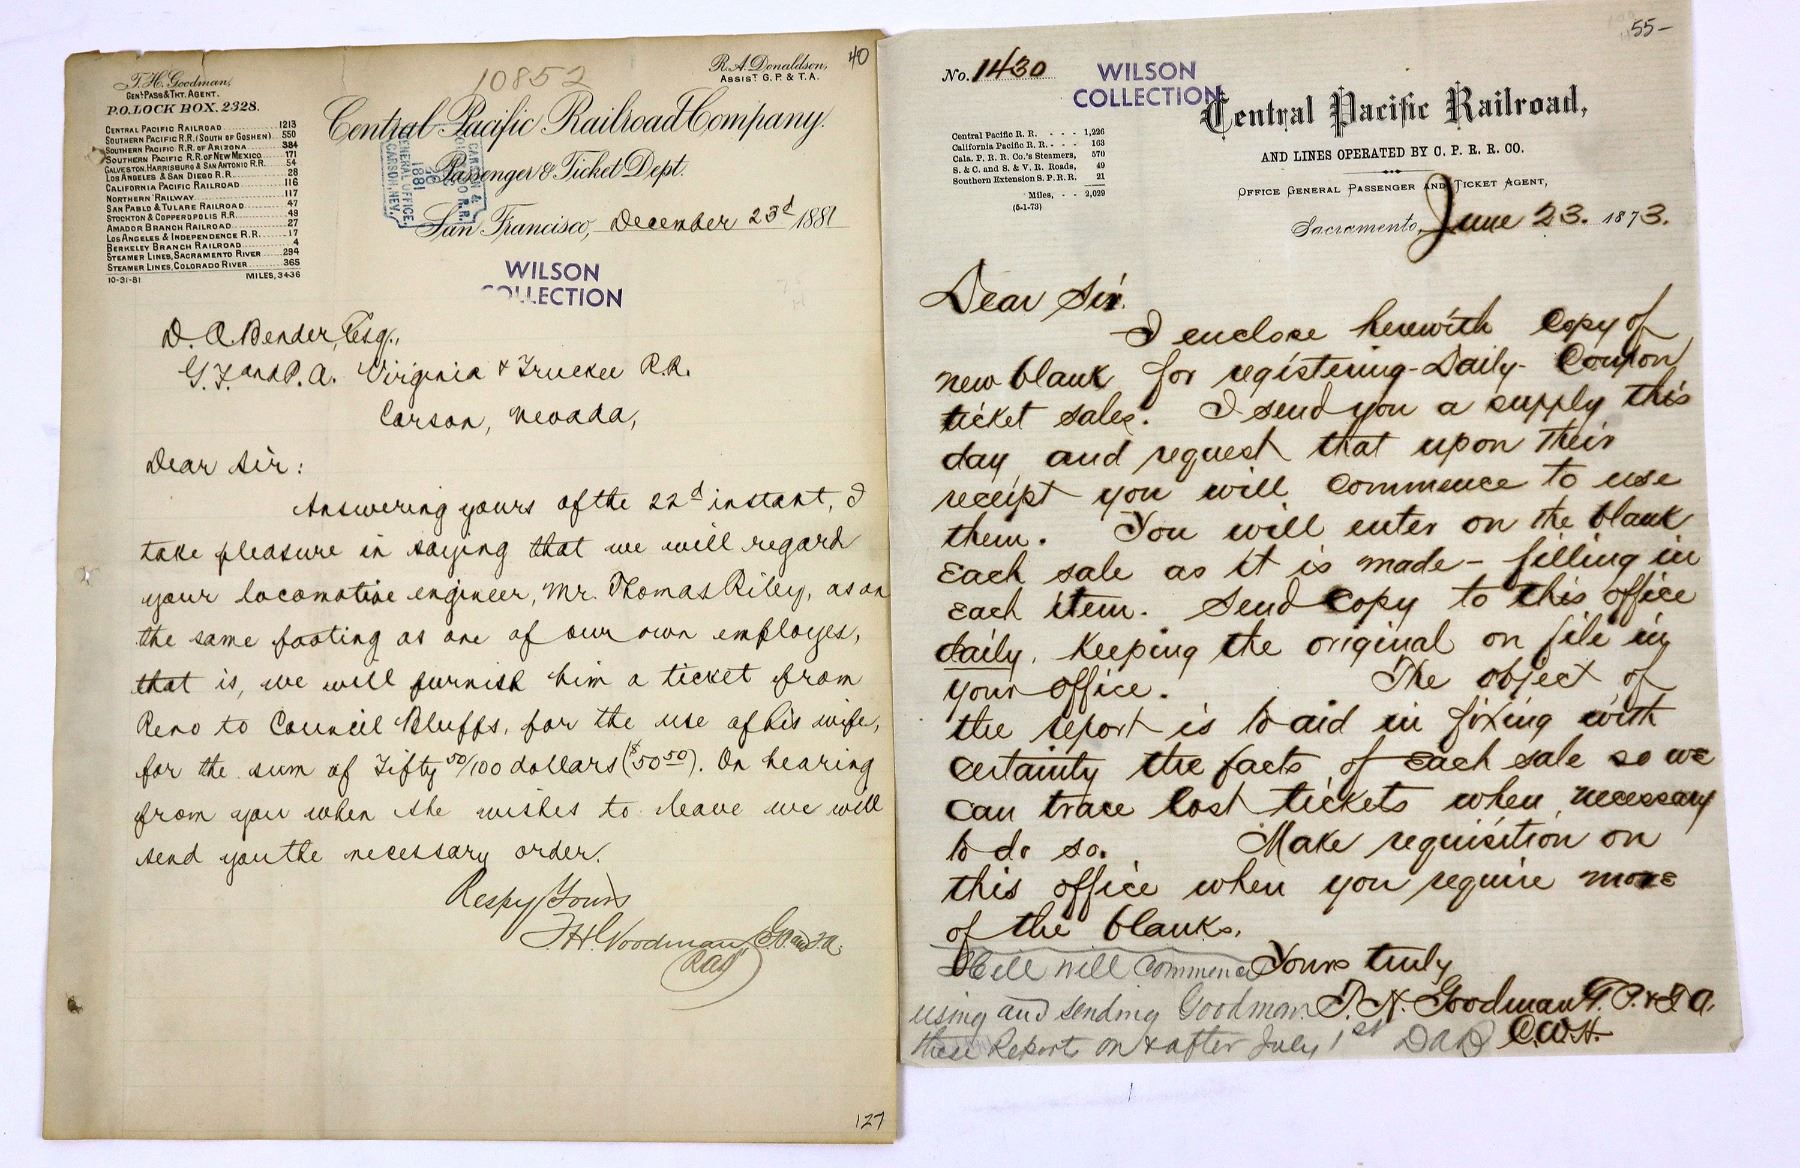 T. H. Goodman,
Gen'l Pass & Tkt. Agent.
P.O. LOCK BOX. 2328.
10852
R. A. Donaldson,
Assist G. P. & T. A.
40
CENTRAL PACIFIC RAILROAD 1213
SOUTHERN PACIFIC R.R. (SOUTH OF GOSHEN) 550
SOUTHERN PACIFIC R.R. OF ARIZONA 384
SOUTHERN PACIFIC R.R. OF NEW MEXICO 171
GALVESTON, HARRISBURG & SAN ANTONIO R.R. 54
LOS ANGELES & SAN DIEGO R.R. 28
CALIFORNIA PACIFIC RAILROAD 116
NORTHERN RAILWAY 117
SAN PABLO & TULARE RAILROAD 47
STOCKTON & COPPEROPOLIS R.R. 49
AMADOR BRANCH RAILROAD 27
LOS ANGELES & INDEPENDENCE R.R. 17
BERKELEY BRANCH RAILROAD 4
STEAMER LINES, SACRAMENTO RIVER 294
STEAMER LINES, COLORADO RIVER 365
10-31-81 MILES, 3436
Central Pacific Railroad Company.
Passenger & Ticket Dept.
CARSON &
1881
GENERAL OFFICE,
CARSON, NEV.
San Francisco, December 23d 1881
WILSON
COLLECTION
D. A. Bender, Esq.,
G. F. and P. A. Virginia & Truckee R.R.
Carson, Nevada,
Dear Sir:
Answering yours of the 22d instant, I
take pleasure in saying that we will regard
your locomotive engineer, Mr. Thomas Riley, as on
the same footing as one of our own employes,
that is, we will furnish him a ticket from
Reno to Council Bluffs, for the use of his wife,
for the sum of Fifty 50/100 dollars ($50 50). On hearing
from you when she wishes to leave we will
send you the necessary order.
Respy Yours
T H Goodman G.P. and T.A.
RAD
127
55-
No. 1430
WILSON
COLLECTION
Central Pacific Railroad,
AND LINES OPERATED BY C. P. R. R. CO.
Central Pacific R. R. - - - 1,226
California Pacific R. R. - - - 163
Cala. P. R. R. Co.'s Steamers, 570
S. & C. and S. & V. R. Roads, 49
Southern Extension S. P. R. R. 21
Miles, - - 2,029
(5-1-73)
OFFICE GENERAL PASSENGER AND TICKET AGENT,
Sacramento, June 23. 1873.
Dear Sir.
I enclose herewith copy of
new blank for registering - Daily - Coupon
ticket sales. I send you a supply this
day and request that upon their
receipt you will commence to use
them. You will enter on the blank
each sale as it is made - filling in
each item. Send copy to this office
daily, keeping the original on file in
your office. The object of
the report is to aid in fixing with
certainty the facts of each sale so we
can trace lost tickets when necessary
to do so. Make requisition on
this office when you require more
of the blanks.
Yours truly
T. H. Goodman G. P. & T. A.
C.W.H.
will commence
using and sending Goodman
these Reports on & after July 1st DAB